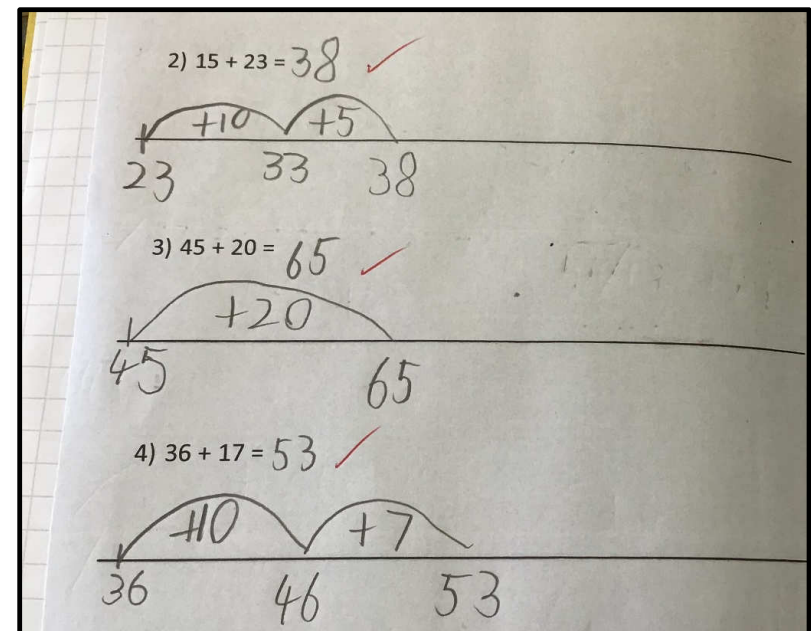 2) 15 + 23 = 38
+10 +5
23 33 38
3) 45 + 20 = 65
+20
45 65
4) 36 + 17 = 53
+10 +7
36 46 53